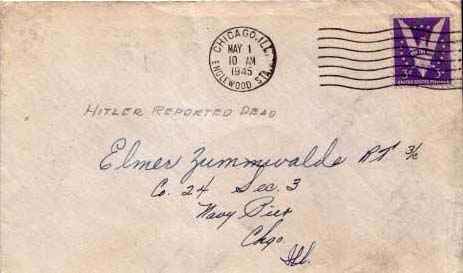 CHICAGO, ILL.
MAY 1
10 AM
1945
ENGLEWOOD STA.
3¢ 3¢
HITLER REPORTED DEAD
Elmer Zummwalde RT 3/c
Co. 24 Sec. 3
Navy Pier
Chgo.
Ill.